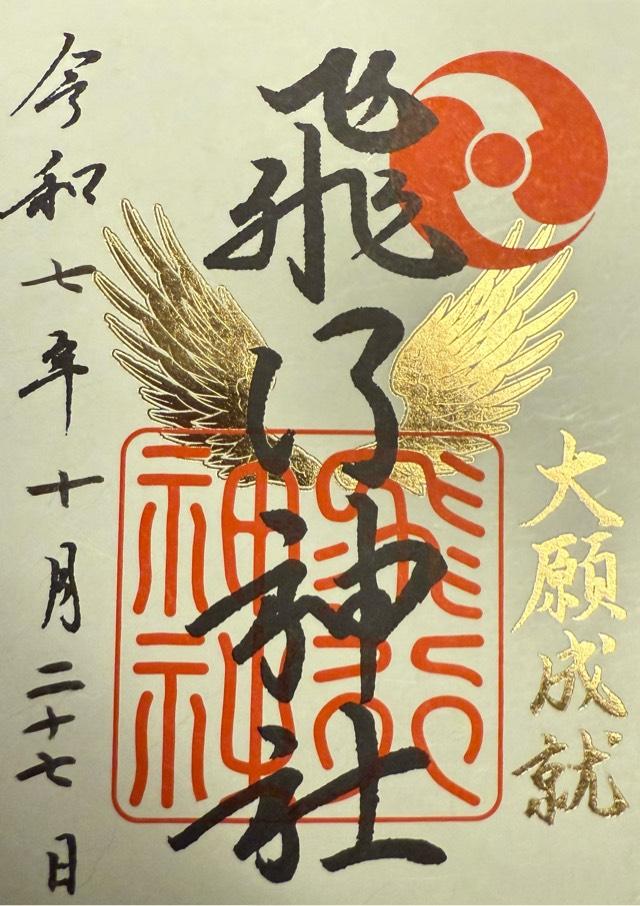 大願成就
飛行神社
令和七年十月二十七日